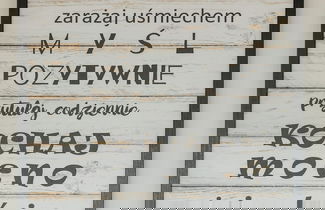 zarażaj uśmiechem
MYŚL
POZYTYWNIE
przytulaj codziennie
KOCHAJ
mocno